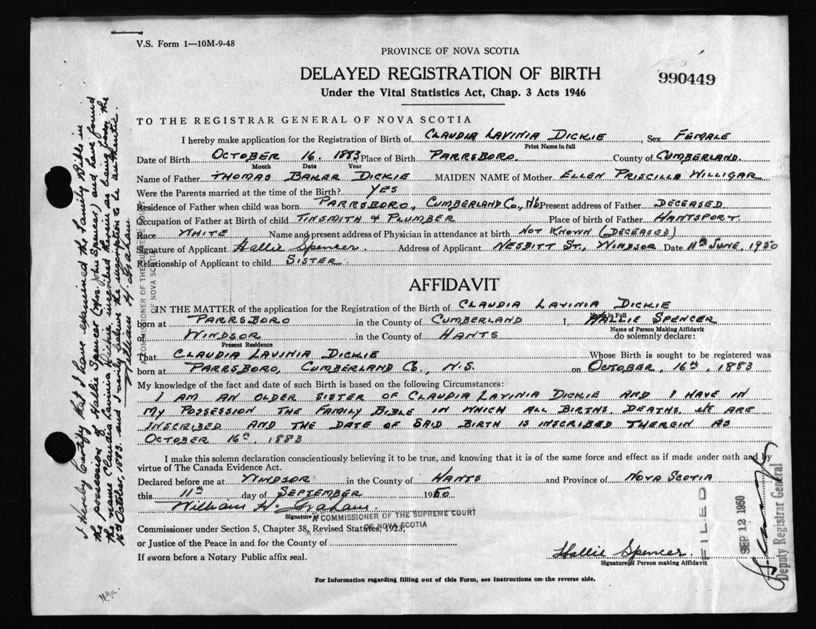 V.S. Form 1—10M-9-48
PROVINCE OF NOVA SCOTIA
DELAYED REGISTRATION OF BIRTH
990449
Under the Vital Statistics Act, Chap. 3 Acts 1946
TO THE REGISTRAR GENERAL OF NOVA SCOTIA
I hereby make application for the Registration of Birth of CLAUDIA LAVINIA DICKIE, Sex FEMALE
Print Name in full
Date of Birth OCTOBER 16. 1883 Place of Birth PARRSBORO. County of CUMBERLAND.
Month Date Year
Name of Father THOMAS BAKER DICKIE MAIDEN NAME of Mother ELLEN PRISCILLA WILLIGAR
Were the Parents married at the time of the Birth? YES
Residence of Father when child was born PARRSBORO, CUMBERLAND CO., NS Present address of Father DECEASED
Occupation of Father at Birth of child TINSMITH & PLUMBER Place of birth of Father HANTSPORT.
Race WHITE Name and present address of Physician in attendance at birth NOT KNOWN (DECEASED)
Signature of Applicant Hallie Spencer. Address of Applicant NESBITT ST, WINDSOR Date 11th JUNE, 1950
Relationship of Applicant to child SISTER.
AFFIDAVIT
IN THE MATTER of the application for the Registration of Birth of CLAUDIA LAVINIA DICKIE
born at PARRSBORO in the County of CUMBERLAND I, HALLIE SPENCER
Name of Person Making Affidavit
WINDSOR in the County of HANTS do solemnly declare:
Present Residence
That CLAUDIA LAVINIA DICKIE Whose Birth is sought to be registered was
born at PARRSBORO, CUMBERLAND CO., N.S. on OCTOBER, 16th, 1883
My knowledge of the fact and date of such Birth is based on the following Circumstances:
I AM AN OLDER SISTER OF CLAUDIA LAVINIA DICKIE AND I HAVE IN
MY POSSESSION THE FAMILY BIBLE IN WHICH ALL BIRTHS, DEATHS, ETC ARE
INSCRIBED AND THE DATE OF SAID BIRTH IS INSCRIBED THEREIN AS
OCTOBER 16th. 1883
I make this solemn declaration conscientiously believing it to be true, and knowing that it is of the same force and effect as if made under oath and by
virtue of The Canada Evidence Act.
Declared before me at WINDSOR in the County of HANTS and Province of NOVA SCOTIA
this 11th day of SEPTEMBER 1950
William H. Graham.
Signature of
A COMMISSIONER OF THE SUPREME COURT
OF NOVA SCOTIA
Commissioner under Section 5, Chapter 38, Revised Statutes, 1923,
or Justice of the Peace in and for the County of
If sworn before a Notary Public affix seal.
Hallie Spencer.
Signature of Person making Affidavit
For Information regarding filling out of this Form, see Instructions on the reverse side.
FILED
SEP 12 1950
Deputy Registrar General
I hereby Certify that I have examined the Family Bible in
the possession of Hallie Spencer (Mrs. John Spencer) and have found
the name Claudia Lavinia Dickie inscribed therein as being born the
16th October, 1883. and I verily believe the inscription to be authentic.
William H. Graham.
A COMMISSIONER OF THE SUPREME COURT
OF NOVA SCOTIA